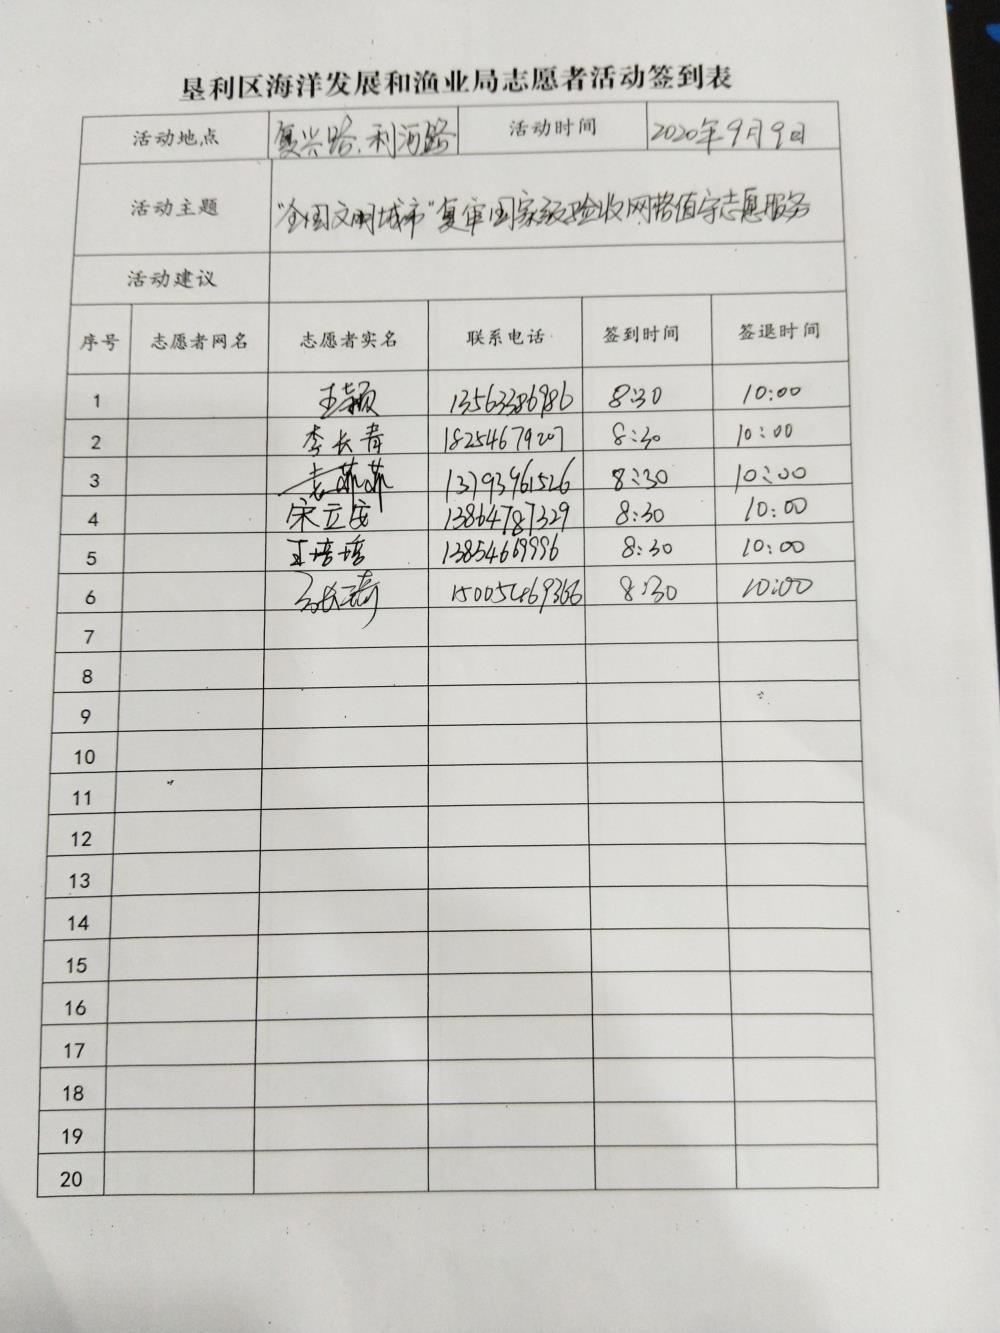 垦利区海洋发展和渔业局志愿者活动签到表
活动地点 复兴路、利河路 活动时间 2020年9月9日
活动主题 "全国文明城市"复审国家级验收网格值守志愿服务
活动建议
序号 志愿者网名 志愿者实名 联系电话 签到时间 签退时间
1 王颖 13563386986 8:30 10:00
2 李长青 18254679207 8:30 10:00
3 袁菲菲 13793961526 8:30 10:00
4 宋立安 13864787329 8:30 10:00
5 王培培 13854669996 8:30 10:00
6 15005469366 8:30 10:00
7
8
9
10
11
12
13
14
15
16
17
18
19
20